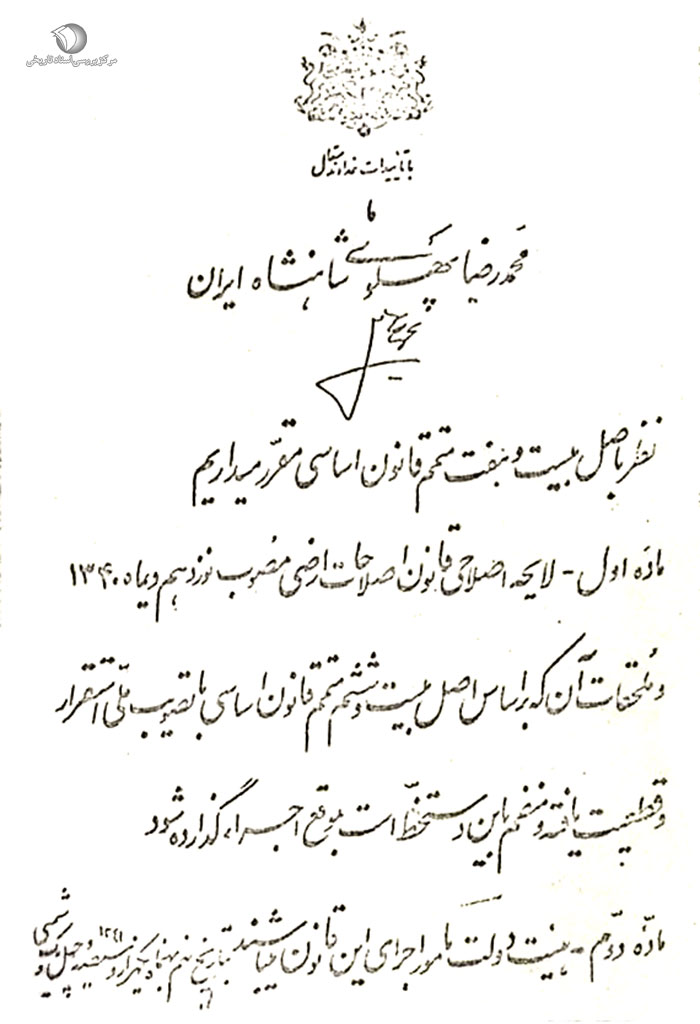 مرکز بررسی اسناد تاریخی
با تأییدات خداوند متعال
ما
محمد رضا پهلوی شاهنشاه ایران
نظر باصل بیست و هفت متمم قانون اساسی مقرّر میداریم
مادّه اول - لایحه اصلاحی قانون اصلاحات ارضی مصوب نوزدهم دیماه ۱۳۴۰
و ملحقات آن که براساس اصل بیست و ششم متمم قانون اساسی با تصویب ملّی استقرار
و قطعیت یافته و منضم باین دستخطّ است بموقع اجراء گذارده شود
مادّه دوّم - هیئت دولت مأمور اجرای این قانون میباشند بتاریخ بهمن ماه یکهزار و سیصد و چهل و یک شمسی ۱۳۴۱